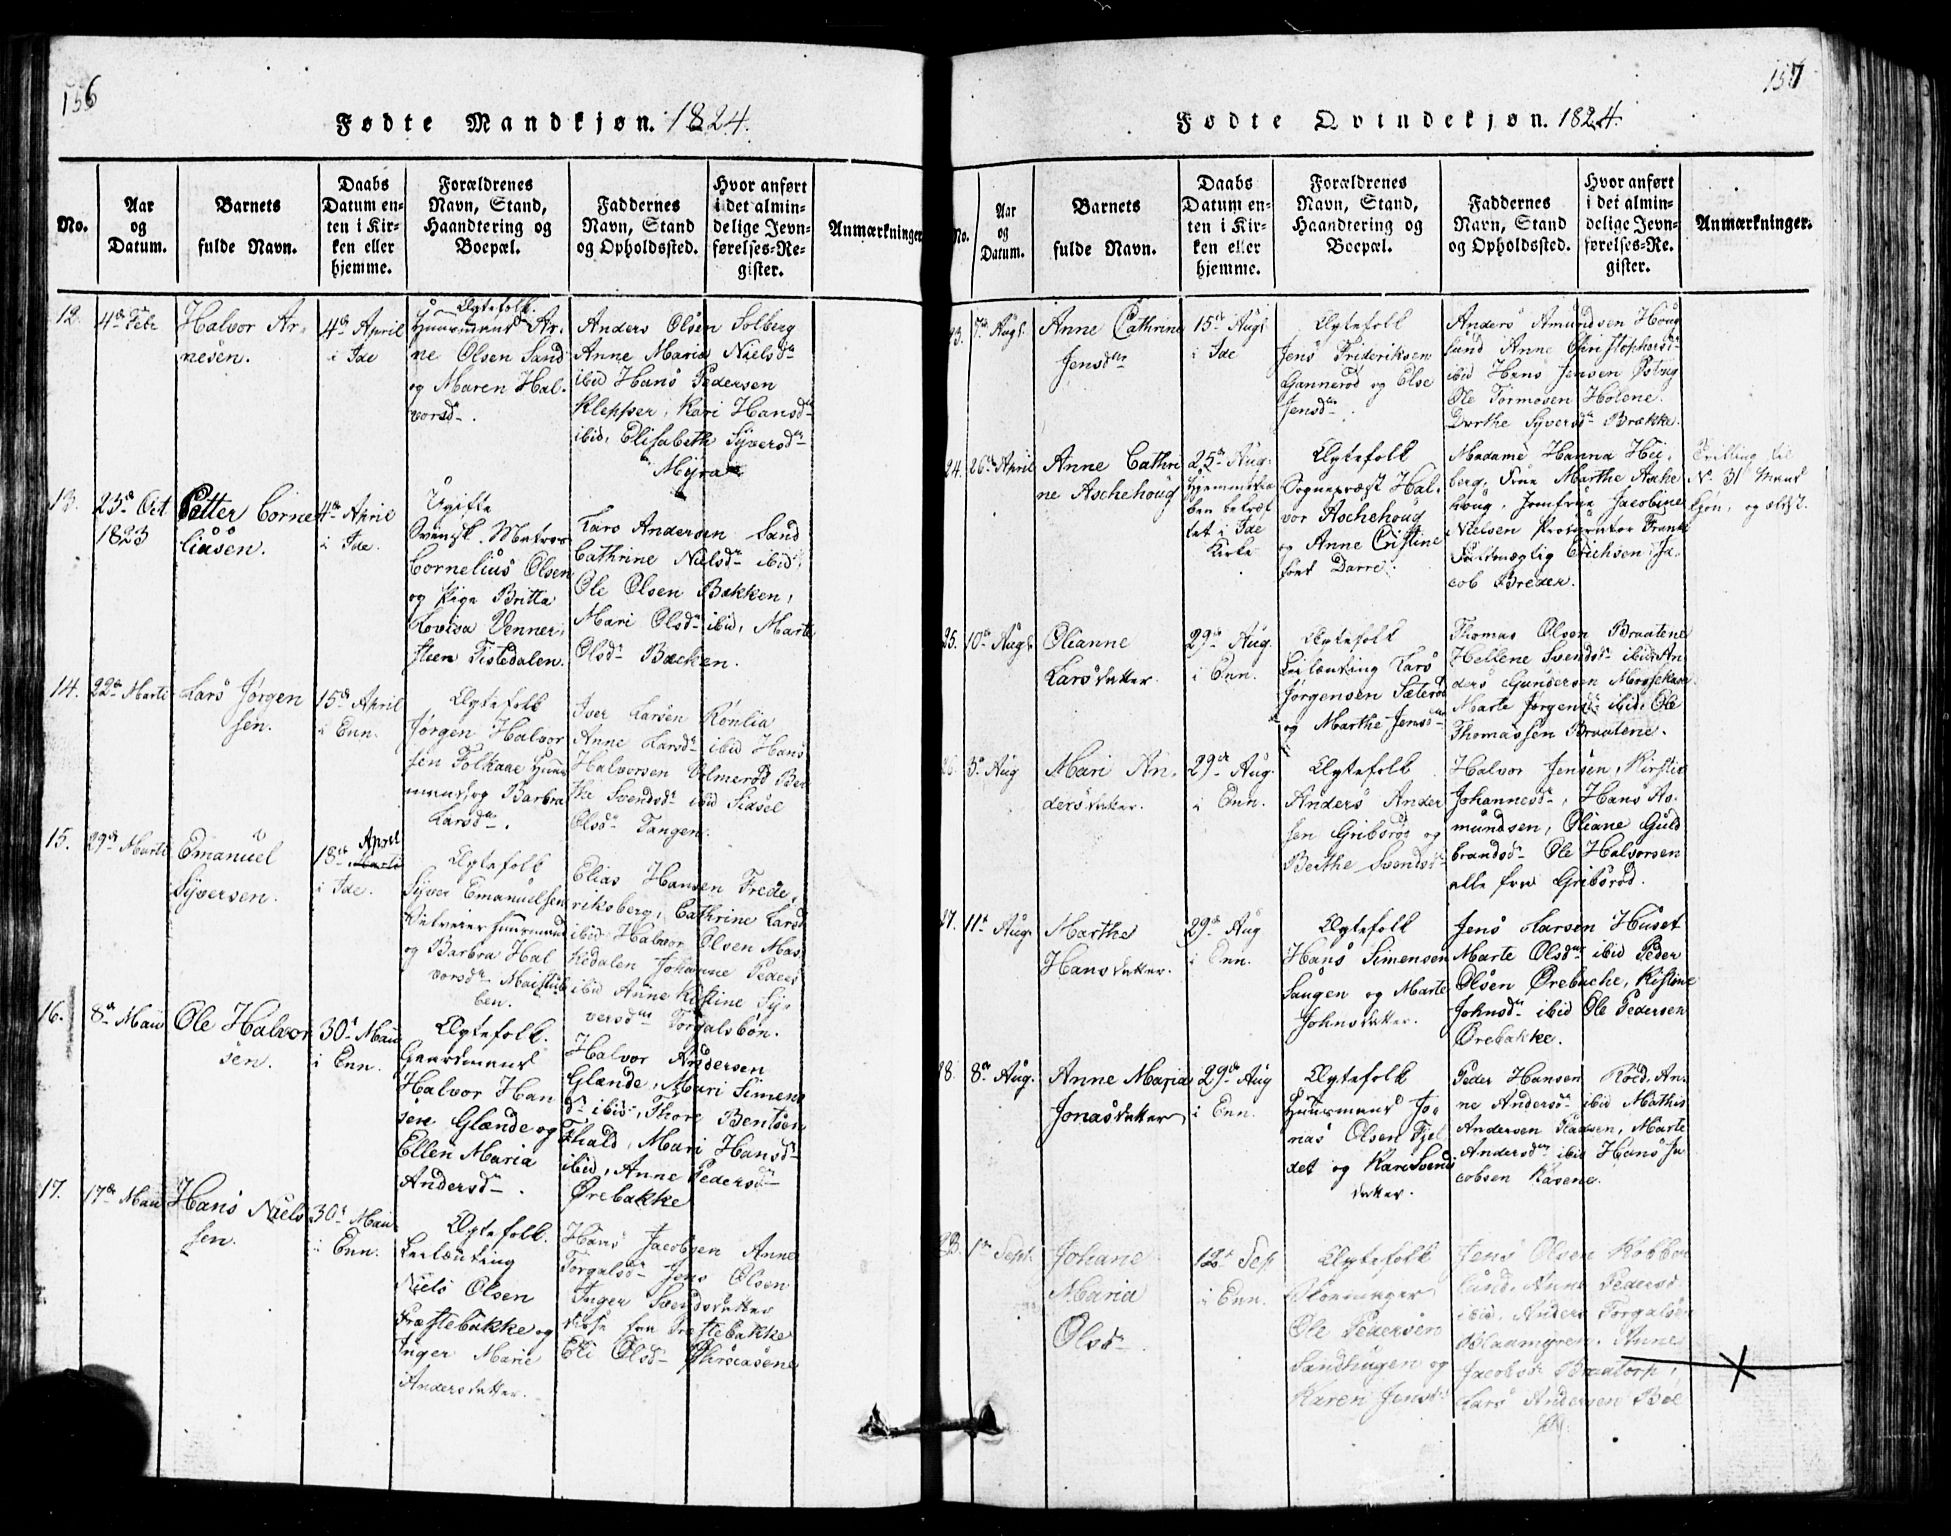 156
Fødte Mandkjøn. 1824.
No.
Aar
og
Datum.
Barnets
fulde Navn.
Daabs
Datum en-
ten i Kir-
ken eller
hjemme.
Forældrenes
Navn, Stand,
Haandtering og
Boepæl.
Faddernes
Navn, Stand
og Opholdssted.
Hvor anført
i det almin-
delige Jevn-
førelses-Re-
gister.
Anmærkninger
12.
4de Febr
Halvor Ar-
nesen.
4de April
i Ide
Ægtefolk.
Huusmand Ar-
ne Olsen Sand
og Maren Hal-
vorsd.
Anders Olsen Solberg
Anne Maria Nielsd
ibid Hans Pedersen
Klepper, Kari Hansd
ibid, Elisabeth Syversd
Myra
13.
25de Oct
1823
Petter Corne
liusen.
4de April
i Ide.
Ugifte
Svensk Matros
Cornelius Olsen
og Pige Britta
Lovisa Venner-
steen Tistedalen.
Lars Andersen Sand
Cathrine Nielsd ibid,
Ole Olsen Bakken,
Mari Olsd ibid, Marte
Olsd Backen.
14.
22de Marti
Lars Jørgen
sen.
15de April
i Enn.
Ægtefolk
Jørgen Halvor
sen Folkaae Huus
mand, og Barbra
Larsd.
Iver Larsen Rønlia
Anne Larsd ibid Hans
Halvorsen Ulmerød Ber
the Svendsd ibid Sidsel
Olsd Tangen.
15.
29de Marti
Emanuel
Syversen.
April
18de Marti
i Ide.
Ægtefolk
Syver Emanuelsen
huusmand
og Barbra Hal
vorsd
ben.
Elias Hansen Frede-
riksberg, Cathrine Larsd
ibid Halvor Olsen Mas-
kedalen Johanne Peders
ibid Anne Kistine Sy-
versd Torgalsbøn.
16.
8de Maii
Ole Halvor
sen.
30te Maii
i Enn.
Ægtefolk.
Gaardmand
Halvor Han
sen Glænde og
Ellen Maria
Andersd.
Halvor Andersen
Glænde, Mari Simens
d ibid, Thore Bentsen
Mari Hansd
ibid, Anne Pedersd
Ørebakke
17.
17de Maii
Hans Niels
sen.
30te Maii
i Enn.
Ægtefolk.
Leilænting
Niels Olsen
Præstebakke og
Inger Marie
Andersdatter.
Hans Jacobsen Anne
Torgalsd Jens Olsen
Inger Svendsdatter
disse fra Præstebakke
Eli Olsd
157
Fødte Qvindekjøn. 1824.
No.
Aar
og
Datum.
Barnets
fulde Navn.
Daabs
Datum en-
ten i Kir-
ken eller
hjemme.
Forældrenes
Navn, Stand,
Haandtering og
Boepæl.
Faddernes
Navn, Stand
og Opholdssted.
Hvor anført
i det almin-
delige Jevn-
førelses-Re-
gister.
Anmærkninger.
23.
7de Augs.
Anne Cathrine
Jensd
15de Augs
i Ide
Ægtefolk
Jens Frideriksen
Gannerød og Else
Jensd.
Anders Amundsen Houg
lund Anne Christophersd
ibid Hans Jensen Østbye
Ole Tormosen Holene.
Dorthe Syversd Brække.
24.
26de April
Anne Cathri
ne Aschehoug
25de Aug.
Hjemmedaa
ben bekræf
tet i Ide
Kirke
Ægtefolk
Sognepræst Hal-
vor Aschehoug
og Anne Cristine
født Darre.
Madame Hanna Hei-
berg, Frue Marthe Asche
houg, Jomfrue Jacobine
Nielsen Procurator Frank
Fuldmægtig Erichsen, Ja-
cob Breder.
Tvilling til
No 31 Mand
kjøn, og ældst.
25.
10de Augs.
Olianne
Larsdatter.
29de Aug.
i Enn.
Ægtefolk
Leilænting Lars
Jørgensen Sæterød
og Marthe Jensd
Thomas Olsen Braatene
Hellene Svendsd ibid, An
ders Gundersen
Marte Jørgensd ibid, Ole
Thomassen Braatene.
26.
5te Aug
Mari An-
dersdatter.
29de Aug.
i Enn.
Ægtefolk
Anders Ander
sen Gribsrød og
Berthe Svendsd
Halvor Jensen, Kirstie
Johannesd, Hans As-
mundsen, Oliane Guld
brandsd Ole Halvorsen
alle fra Gribsrød.
27.
11te Augs.
Marthe
Hansdatter.
29de Aug
i Enn.
Ægtefolk
Hans Simensen
Saugen og Marte
Johnsdatter.
Jens Larsen Huset
Marte Olsd ibid Peder
Olsen Ørebache, Kistine
Johnsd ibid Ole Pedersen
Ørebakke.
28.
8de Aug.
Anne Maria
Jonasdatter
29de Aug
i Enn.
Ægtefolk
Huusmand Jo-
nas Olsen Fjel
det og Kari Svends
datter.
Peder Hansen Kold, An-
ne Andersd ibid Mathis
Andersen Pladsen, Marte
Andersd ibid Hans Ja
cobsen Kasene.
29.
1te Sept.
Johane
Maria
Olsd
12te Sep
i Enn.
Ægtefolk
Ole Pedersen
Sandhugen og
Karen Jensd
Jens Olsen
lund, Anne Pedersd
ibid, Anders Torgalsen
Anne
Jacobsd Braatorp,
Lars Andersen Bæ